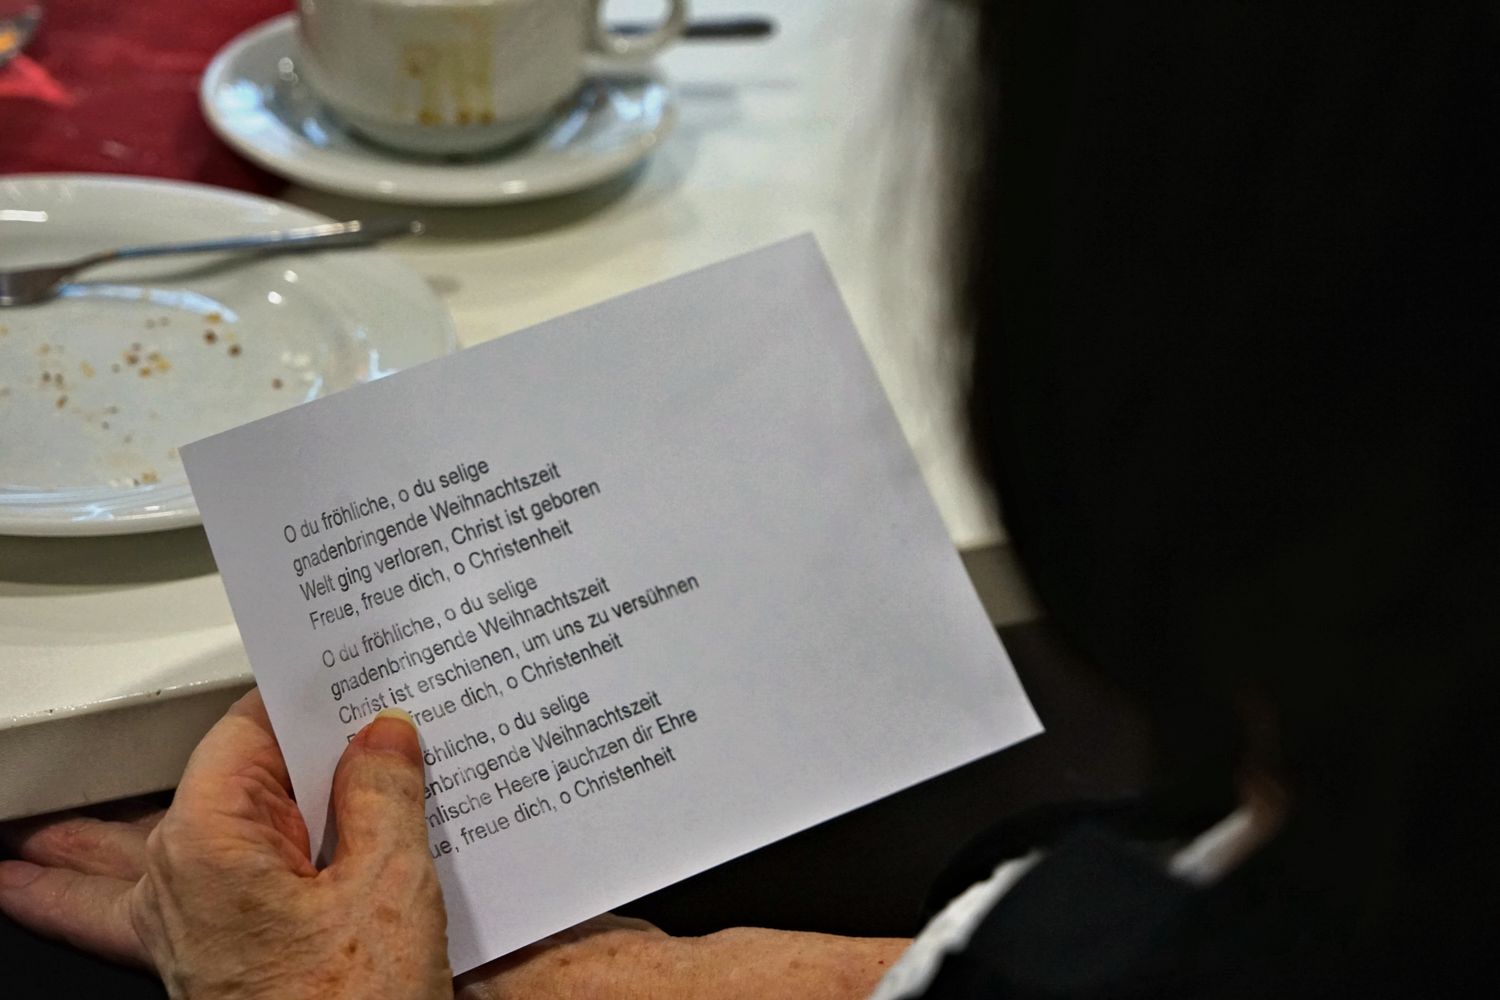 O du fröhliche, o du selige
gnadenbringende Weihnachtszeit
Welt ging verloren, Christ ist geboren
Freue, freue dich, o Christenheit
O du fröhliche, o du selige
gnadenbringende Weihnachtszeit
Christ ist erschienen, um uns zu versühnen
freue dich, o Christenheit
öhliche, o du selige
enbringende Weihnachtszeit
mlische Heere jauchzen dir Ehre
ue, freue dich, o Christenheit